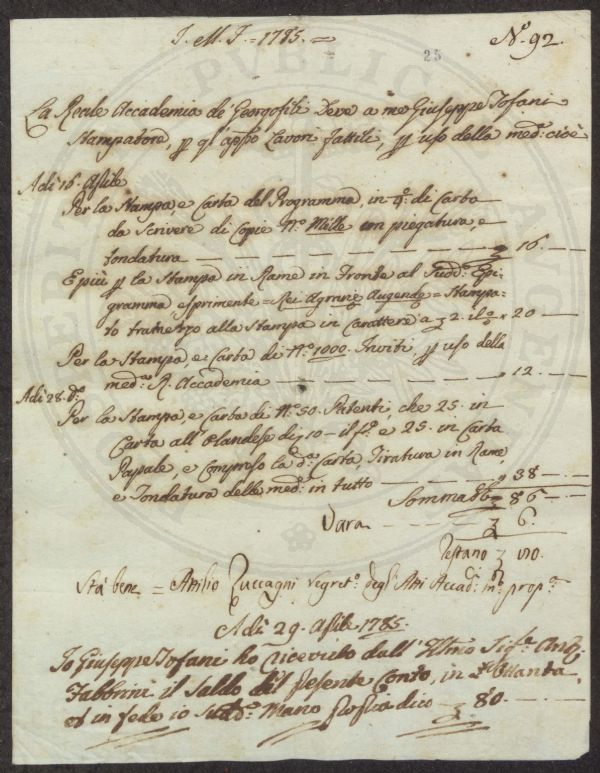 J. M. J. = 1785. =
25
Nº. 92.
La Reale Accademia de' Georgofili Deve a me Giuseppe Tofani
Stampatore, p gl' app:o Lavori fattili, p uso della med:a cioè
Adì 16. Aprile
Per la Stampa, e Carta del Programma, in 4º. di Carta
da Scrivere di Copie Nº. Mille con piegatura, e
tondatura — — — — — 16. —
E più p la Stampa in Rame in Fronte al Sudd:o
gramma esprimente = Rei Agrariæ Augendæ = Stampa-
to tramezzo alla Stampa in Carattere a 2. il 20 —
Per la Stampa, e Carta di Nº. 1000. Inviti, p uso della
med:a R. Accademia — — — — 12. —
Adì 28. do
Per la Stampa, e Carta di Nº. 50. Patenti, che 25. in
Carta all' Olandese di 10 — il fº. e 25. in Carta
Papale, e Compreso la da. Carta, Tiratura in Rame,
e Tondatura delle med:e in tutto — 38 —
Somma 86 —
Tara — — 6.
Restano 80.
Stà bene = Attilio Zuccagni Segret:o degl' Atti Accad:i m:o prop:a
Adì 29. Aprile 1785.
Io Giuseppe Tofani ho ricevuto dall' Illmo Sig:re And:a
Fabbrini il Saldo del presente Conto, in Ottanta,
et in fede io Sudd:o Mano Propria dico 80. —